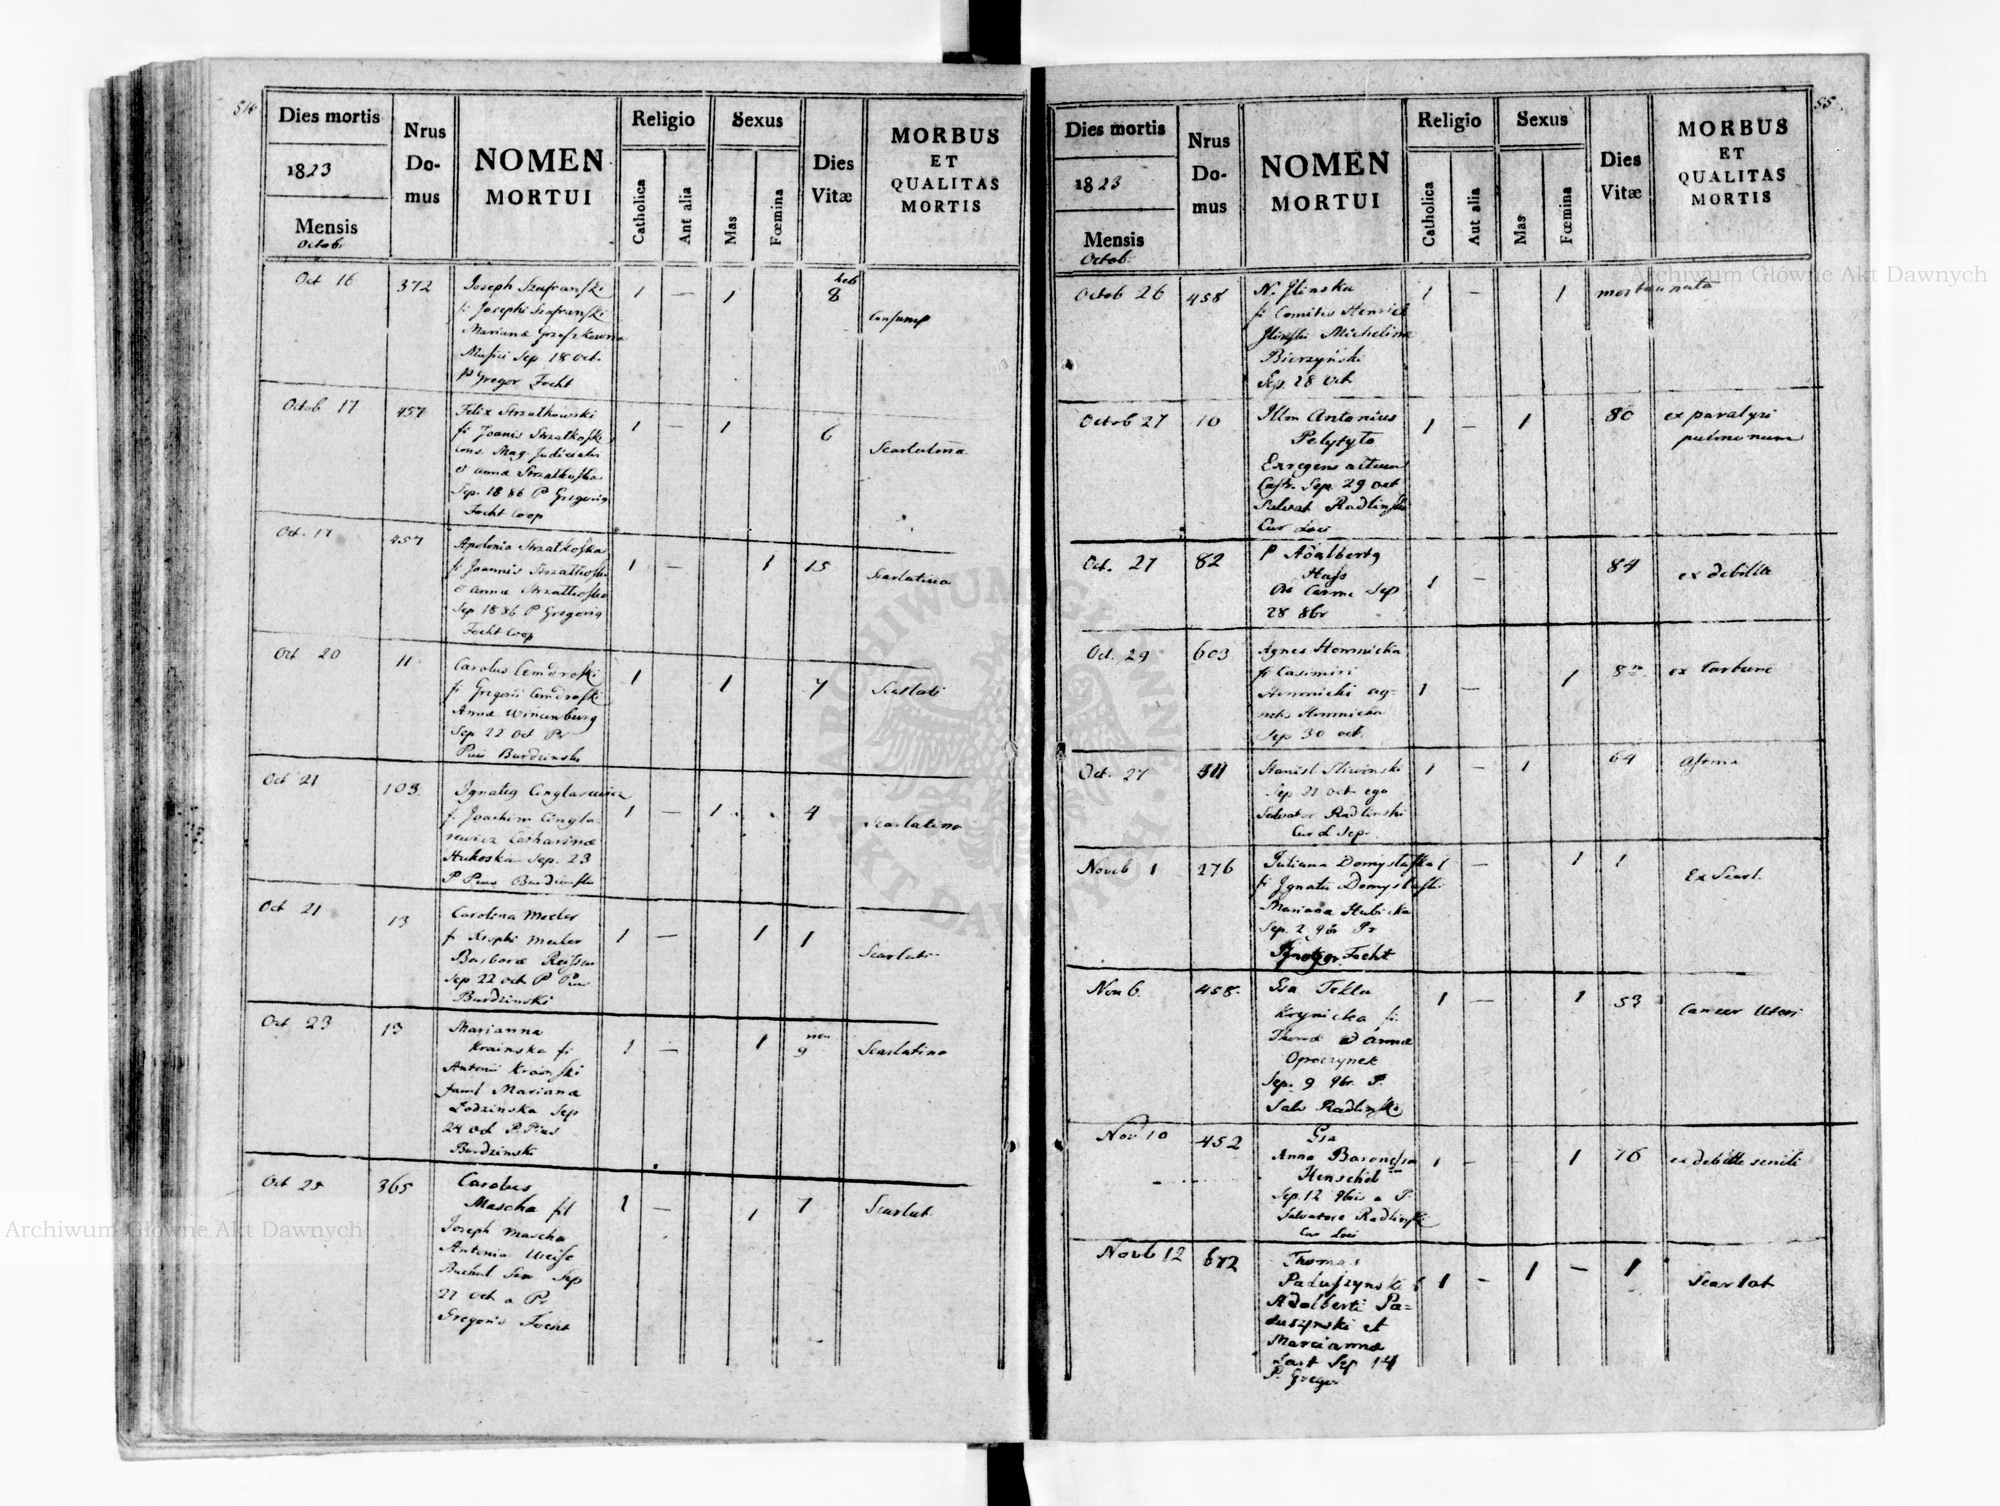 514
Dies mortis
1823
Mensis
Octob.
Nrus
Do-
mus
NOMEN
MORTUI
Religio
Catholica
Aut alia
Sexus
Mas
Fœmina
Dies
Vitæ
MORBUS
ET
QUALITAS
MORTIS
Oct 16
372
Joseph Szafranski
fi Josephi Szafranski
Mariana
Sep 18 oct.
P Gregor Focht
1 — 1
8
Consump
Octob 17
457
Felix Strzatkowski
fi Joanis Strzatkoski
Cons. Mag. Judicialis
et Anna Strzatkoska
Sep. 18 8b P Gregorig
Focht Coop
1 — 1
6
Scarlatina
Oct. 17
457
Apolonia Strzatkoska
fi Joannis Strzatkoski
et Anna Strzatkoska
Sep 18 8b P Gregorig
Focht Coop
1 — 1
15
Scarlatina
Oct 20
11
Carolus Cendroski
fi Gregorii Cendroski
Anna Wincenburg
Sep 22 Oct Pr
Pius Burdzinski
1 1
7
Scarlati
Oct 21
103
Ignatig Cinglarewicz
f. Joachim Cingla-
rewicz Catharina
Hukoska Sep. 23
P Pius Burdzinski
1 — 1
4
Scarlatina
Oct 21
13
Carolina Mecler
f. Mecler
Barbara
Sep 22 oct P Pius
Burdzinski
1 — 1
1
Scarlati
Oct 23
13
Marianna
Krainska fi
Antonii Krainski
famul Mariana
Lodzinska Sep
24 Oct P. Pius
Burdzinski
1 — 1
9
Scarlatina
Oct 25
365
Carolus
Mascha fil
Joseph Mascha
Antonia Weise
Sep
27 Oct a Pr
Gregorio Focht
1 — 1
7
Scarlat.
55
Dies mortis
1823
Mensis
Octob.
Nrus
Do-
mus
NOMEN
MORTUI
Religio
Catholica
Aut alia
Sexus
Mas
Fœmina
Dies
Vitæ
MORBUS
ET
QUALITAS
MORTIS
Octob 26
458
N. Ilinska
fi Comitis Henrici
Ilinski Michelina
Bierzyński
Sep. 28 Oct
1 — 1
mortua nata
Octob 27
10
Illm Antonius
Pelytyło
Exregens actuum
Castr. Sep. 29 oct
Salvat Radlinski
Cur Loci
1 — 1
80
ex paralysi
pulmonum
Oct. 27
82
P Adalbertg
Hass
Ord Carme Sep
28 8br
1 —
84
ex debilita
Oct. 29
603
Agnes Homnicka
fi Casimiri
Homnicki ag-
netis Homnicka
Sep 30 oct.
1 — 1
8
Oct. 27
511
Stanisl Sliwinski
Sep 21 oct ego
Salvator Radlinski
Cur L Sep.
1 — 1
64
Asoma
Noveb 1
276
Juliana Domyslaska
fi Ignatii Domyslaski
Mariana Hubicka
Sep. 2 9br Pr
Focht
1 — 1
1
Ex Scarl.
Nov 6
458.
Gsa Tekla
Krynicka fi.
Thoma et Anna
Oproczynek
Sep. 9 9br. P.
Salv Radlinski
1 — 1
53
Cancer Uteri
Nov 10
452
Gsa
Anna Baronessa
Henschel
Sep. 12 9bris a P.
Salvatore Radlinski
Cur Loci
1 — — 1
76
ex debilitte senili
Novb 12
672
Thomas
Paduszynski f
Adalberti Pa-
duszynski et
Marianna
Sep 14
P. Gregor
1 — 1 —
1
Scarlat
Archiwum Główne Akt Dawnych
Archiwum Główne Akt Dawnych
ARCHIWUM GŁÓWNE AKT DAWNYCH